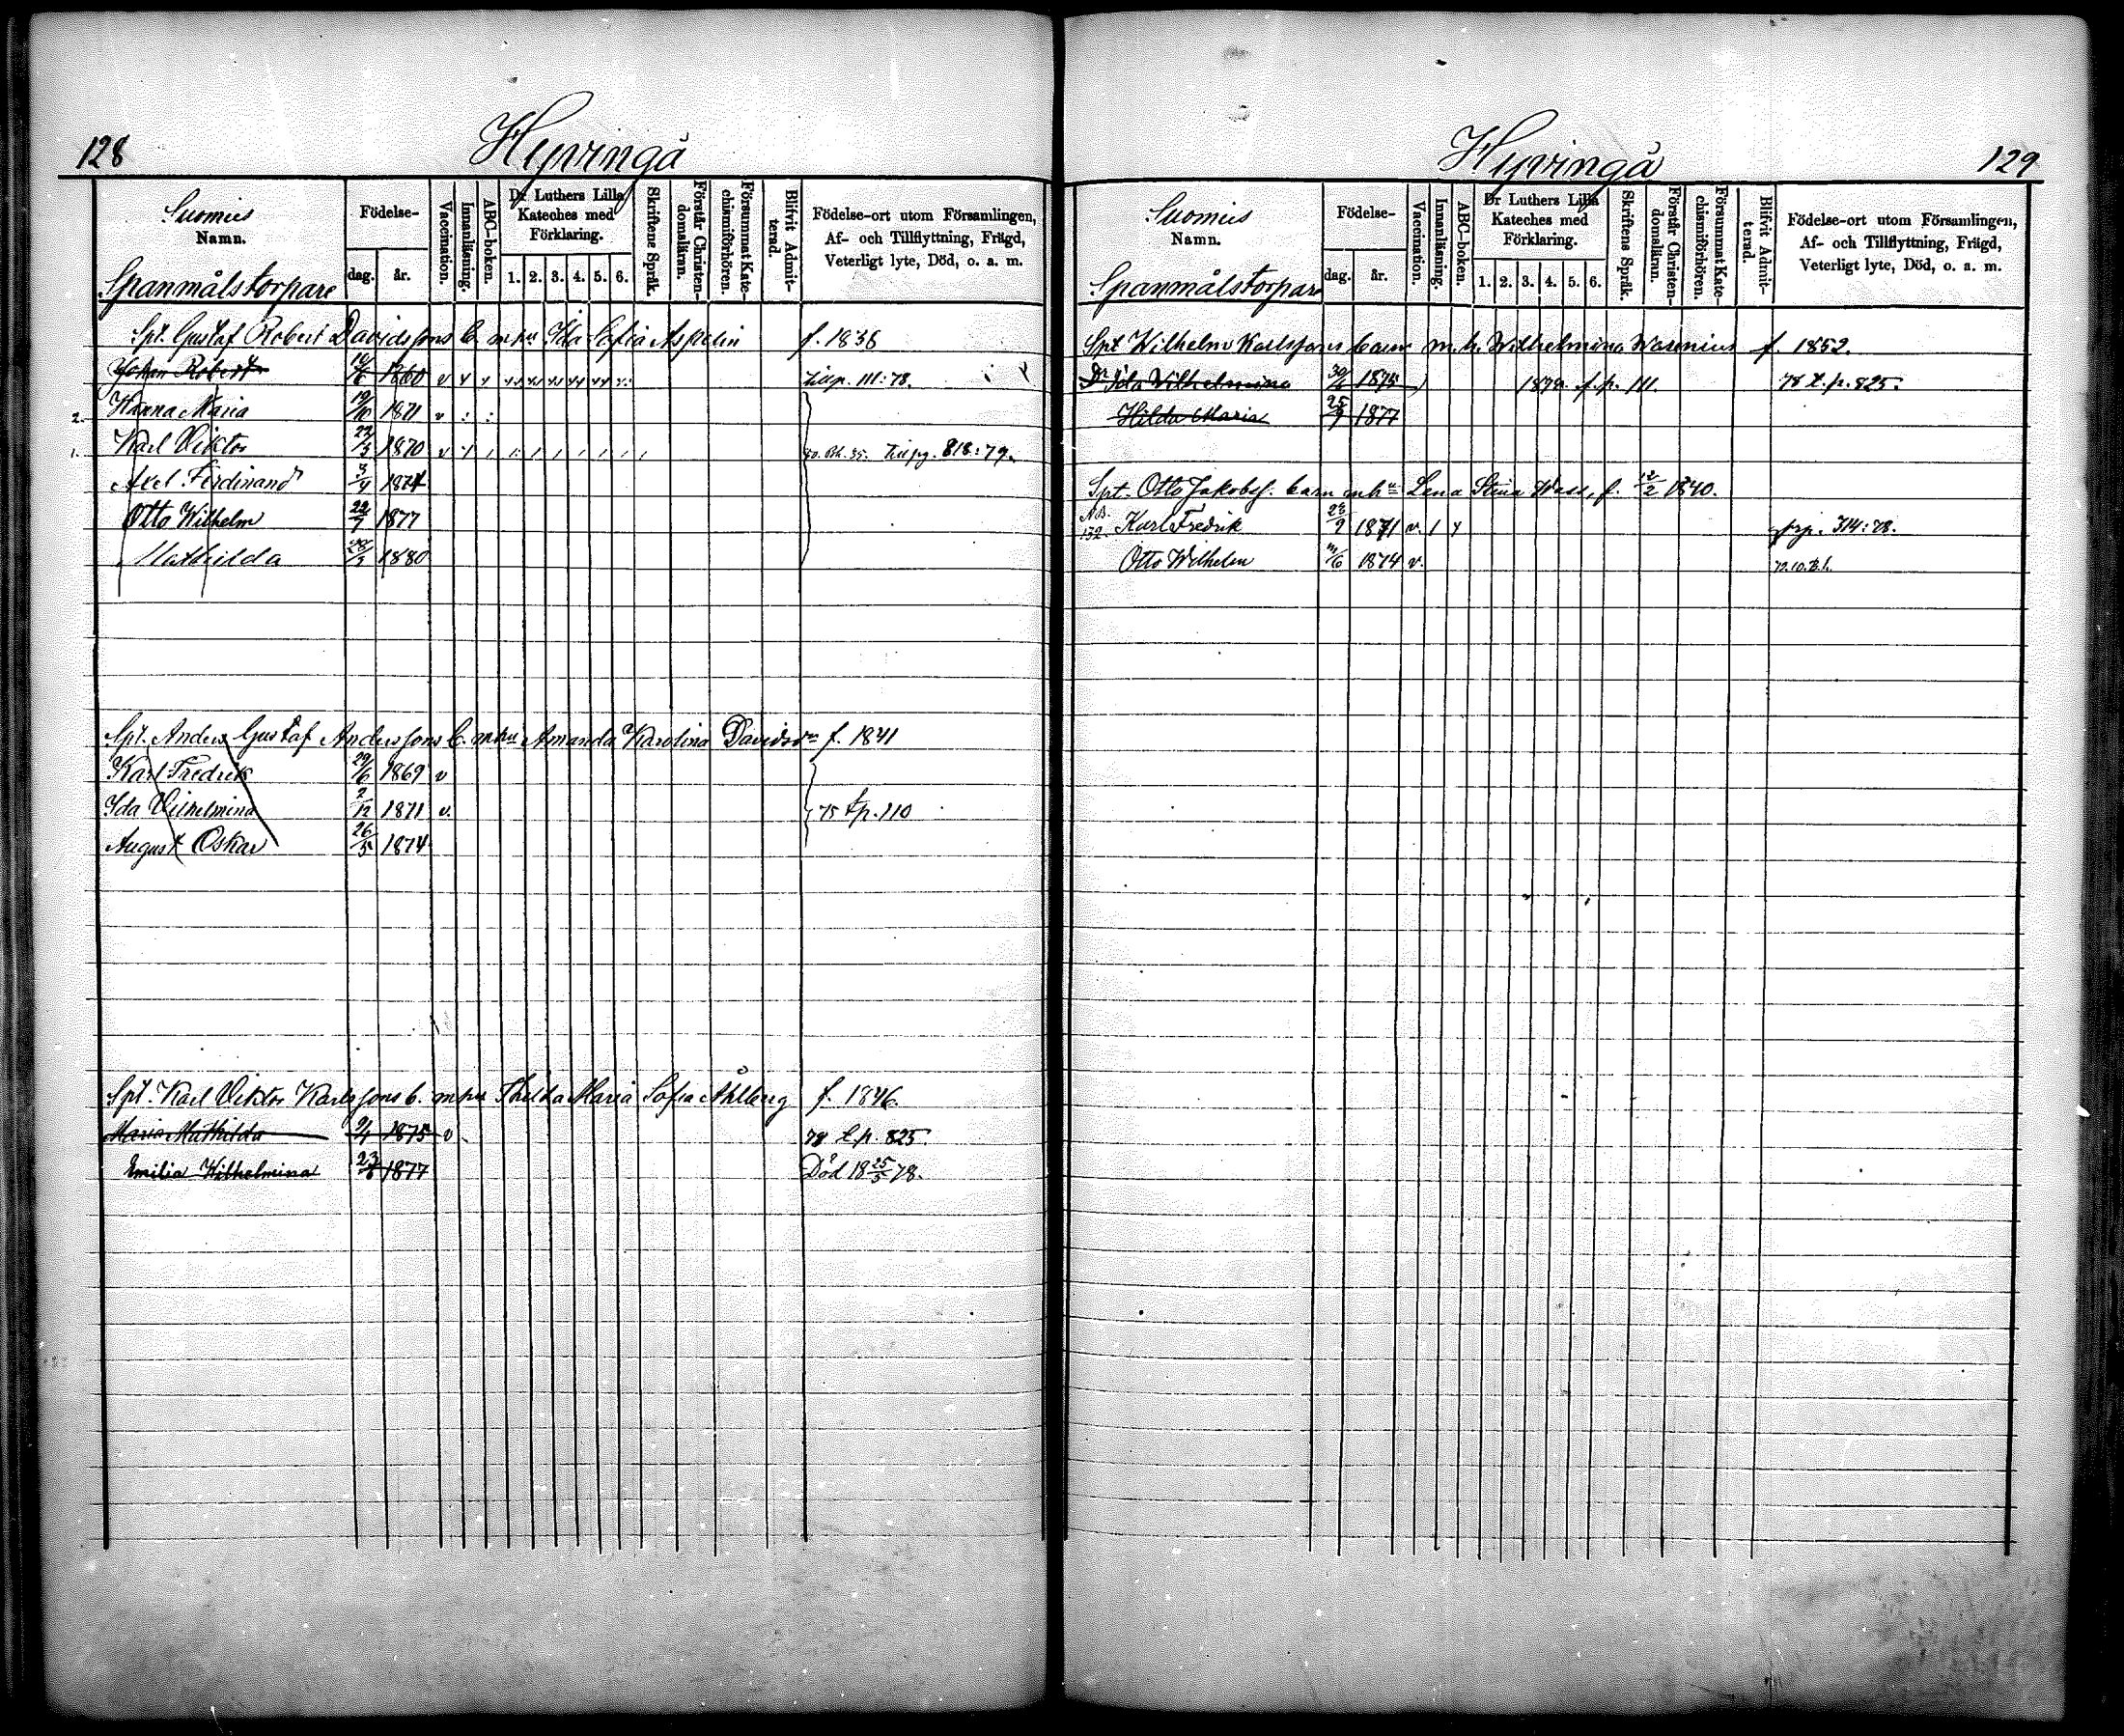 128
Hyvingå
Suomies
Namn.
Spanmålstorpare
Födelse-
dag.
år.
Vaccination.
Innanläsning.
ABC-boken.
Dr Luthers Lilla
Kateches med
Förklaring.
1. 2. 3. 4. 5. 6.
Skriftens Språk.
Förstår Christen-
domsläran.
Försummat Kate-
chismiförhören.
Blifvit Admit-
terad.
Födelse-ort utom Församlingen,
Af- och Tillflyttning, Frägd,
Veterligt lyte, Död, o. a. m.
Spt. Gustaf Robert Davidssons b. m hu Ida Sofia Aspelin f. 1836
Johan Robert 1860 v 111:78.
2. Hanna Maria 19/10 1871 v
1. Karl Viktor 22/3 1870 v 818:79.
Axel Ferdinand 3/4 1874
Otto Wilhelm 22/7 1877
Mathilda 28/3 1880
Spt. Anders Gustaf Anderssons b. m hu Amanda Karolina Davidsdr f. 1841
Karl Fredrik 29/6 1869 v
Ida Vilhelmina 2/12 1871 v.
75 t.p. 110
August Oskar 26/5 1874
Spt. Karl Viktor Karlssons b. m hu Thilda Maria Sofia Ahlberg f. 1846.
Maria Mathilda 9/4 1875 v 78 t.p. 825.
Emilia Wilhelmina 23/8 1877 Död 18 25/3 78.
Hyvingå
129
Suomies
Namn.
Spanmålstorpare
Födelse-
dag.
år.
Vaccination.
Innanläsning.
ABC-boken.
Dr Luthers Lilla
Kateches med
Förklaring.
1. 2. 3. 4. 5. 6.
Skriftens Språk.
Förstår Christen-
domsläran.
Försummat Kate-
chismiförhören.
Blifvit Admit-
terad.
Födelse-ort utom Församlingen,
Af- och Tillflyttning, Frägd,
Veterligt lyte, Död, o. a. m.
Spt Wilhelm Karlssons barn m. h. Wilhelmina Wasenius f. 1852.
Dr Ida Vilhelmina 1875 1878 f.p. 111. 78 t.p. 825.
Hilda Maria 25/9 1877
Spt. Otto Jakobss. barn m hu Lena Stina Wass, f. 12/2 1840.
NB. 132. Karl Fredrik 28/9 1871 v. frp. 314:78.
Otto Wilhelm 11/6 1874 v.